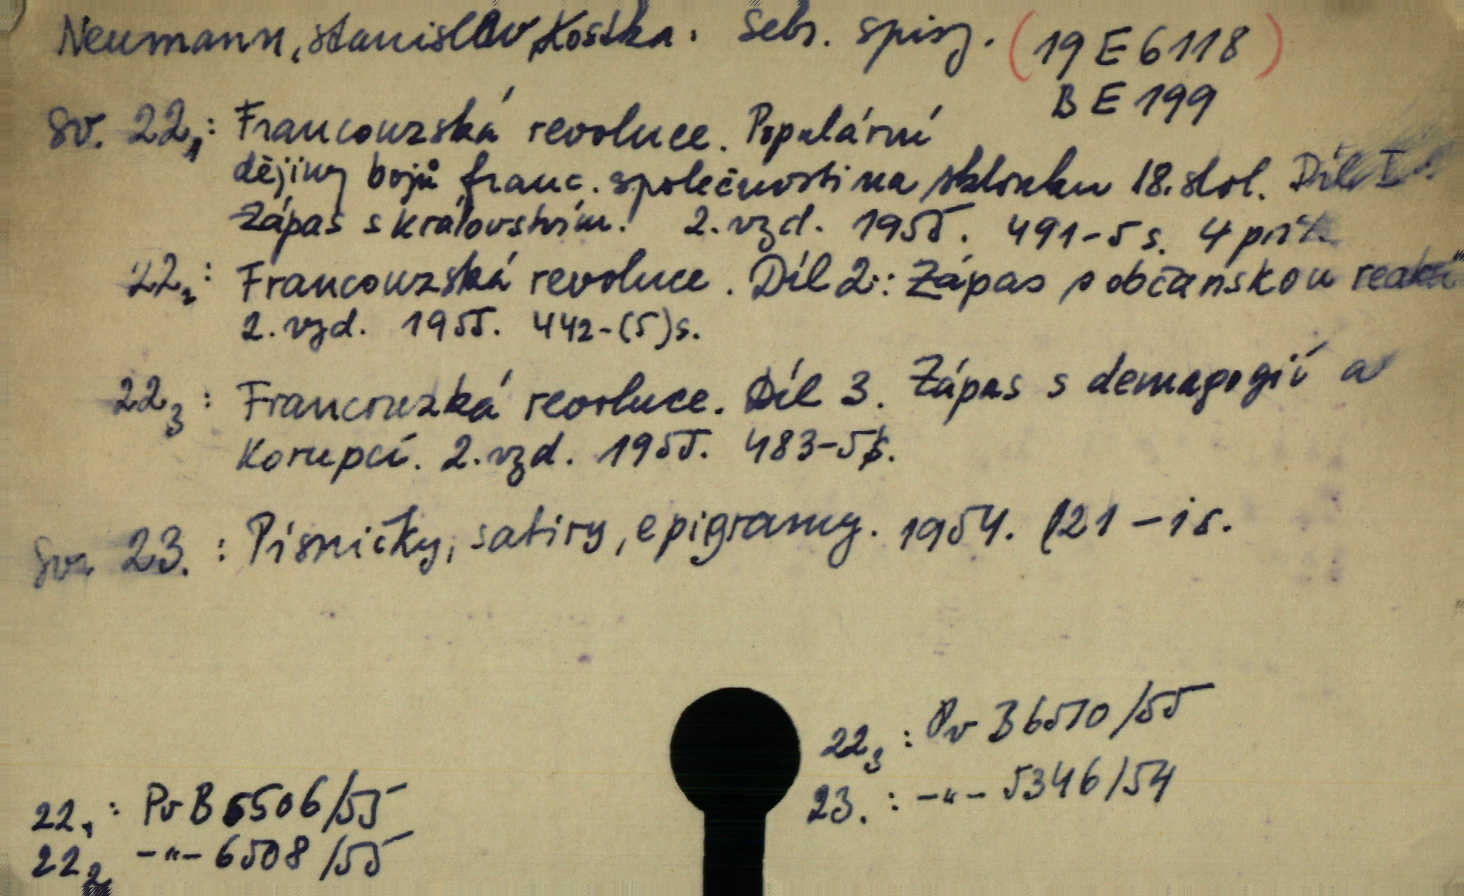 Neumann, Stanislav Kostka. Sebr. spisy. (19 E 6118)
B E 199
Sv. 22₁: Francouzská revoluce. Populární
dějiny bojů franc. společnosti na sklonku 18. stol. Díl I.:
Zápas s královstvím. 2. vyd. 1955. 491-5 s. 4 příl.
22₂: Francouzská revoluce. Díl 2.: Zápas s občanskou reakcí
2. vyd. 1955. 442-(5) s.
22₃: Francouzká revoluce. Díl 3. Zápas s demagogií a
korupcí. 2. vyd. 1955. 483-5 s.
Sv. 23. : Písničky, satiry, epigramy. 1954. 121-i s.
22₃: Pv B 6510/55
23. : -"- 5346/54
22₁: Pv B 6506/55
22₂ -"- 6508/55